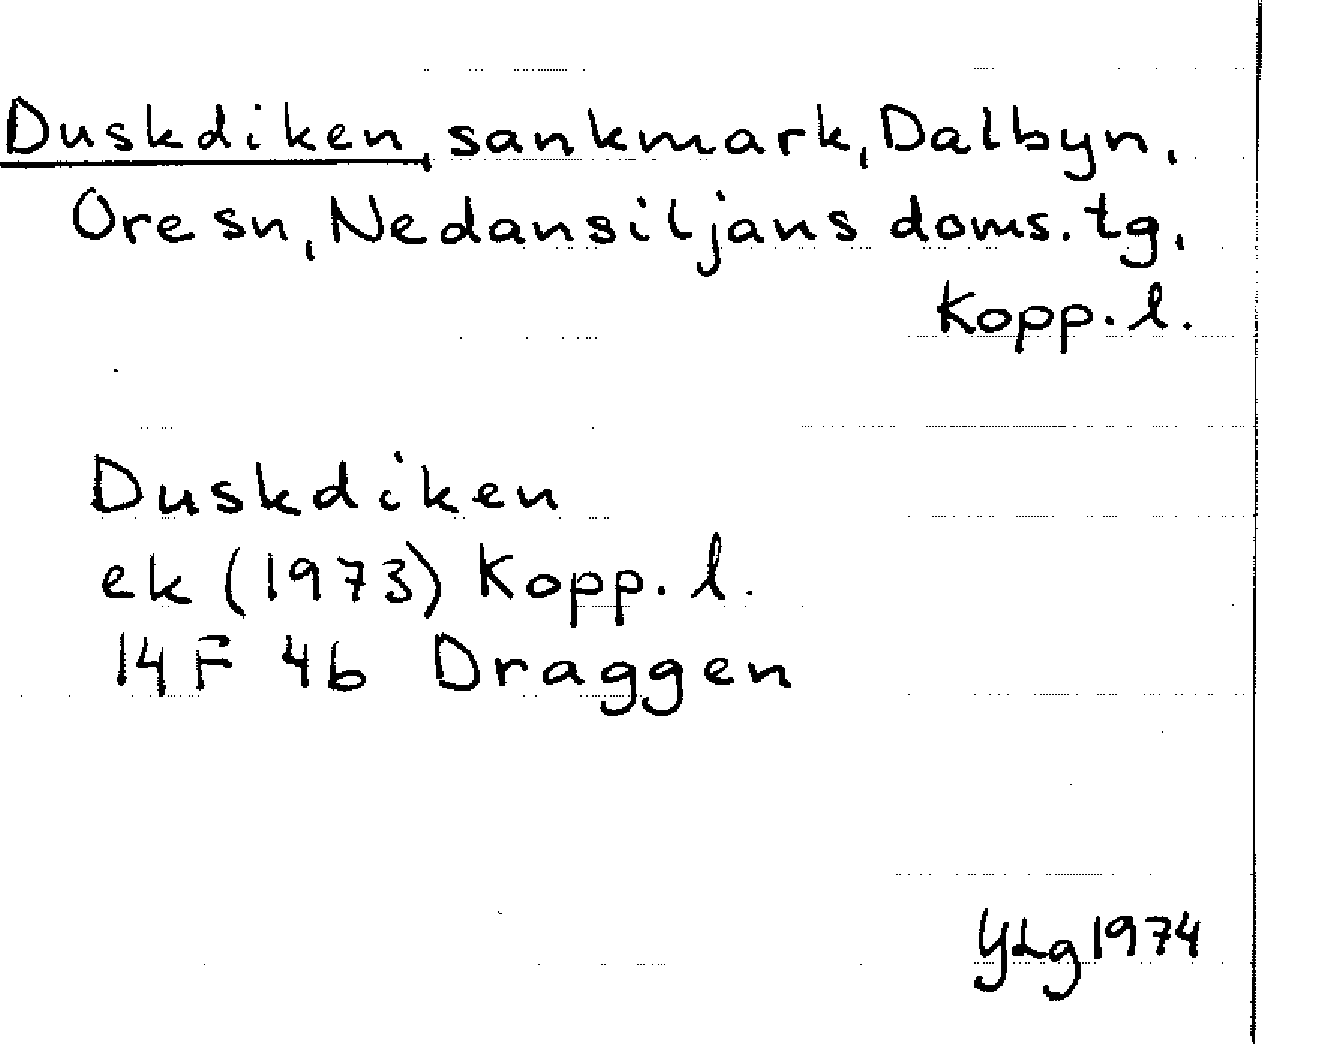 Duskdiken, sankmark, Dalbyn,
Ore sn, Nedansiljans doms. tg,
Kopp. l.
Duskdiken
ek (1973) Kopp. l.
14 F 4b Draggen
YLg 1974